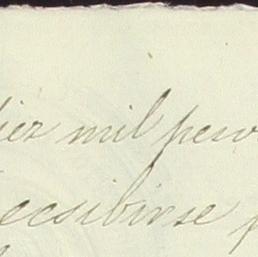 diez mil pesos
recsibirse p